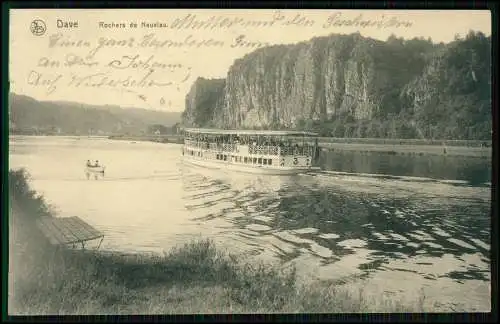 Dave
Rochers de Neuviau
Mutter und den Geschwister
Einen ganz besonderen Grum
an den Johann
Auf Wiedersehen
3